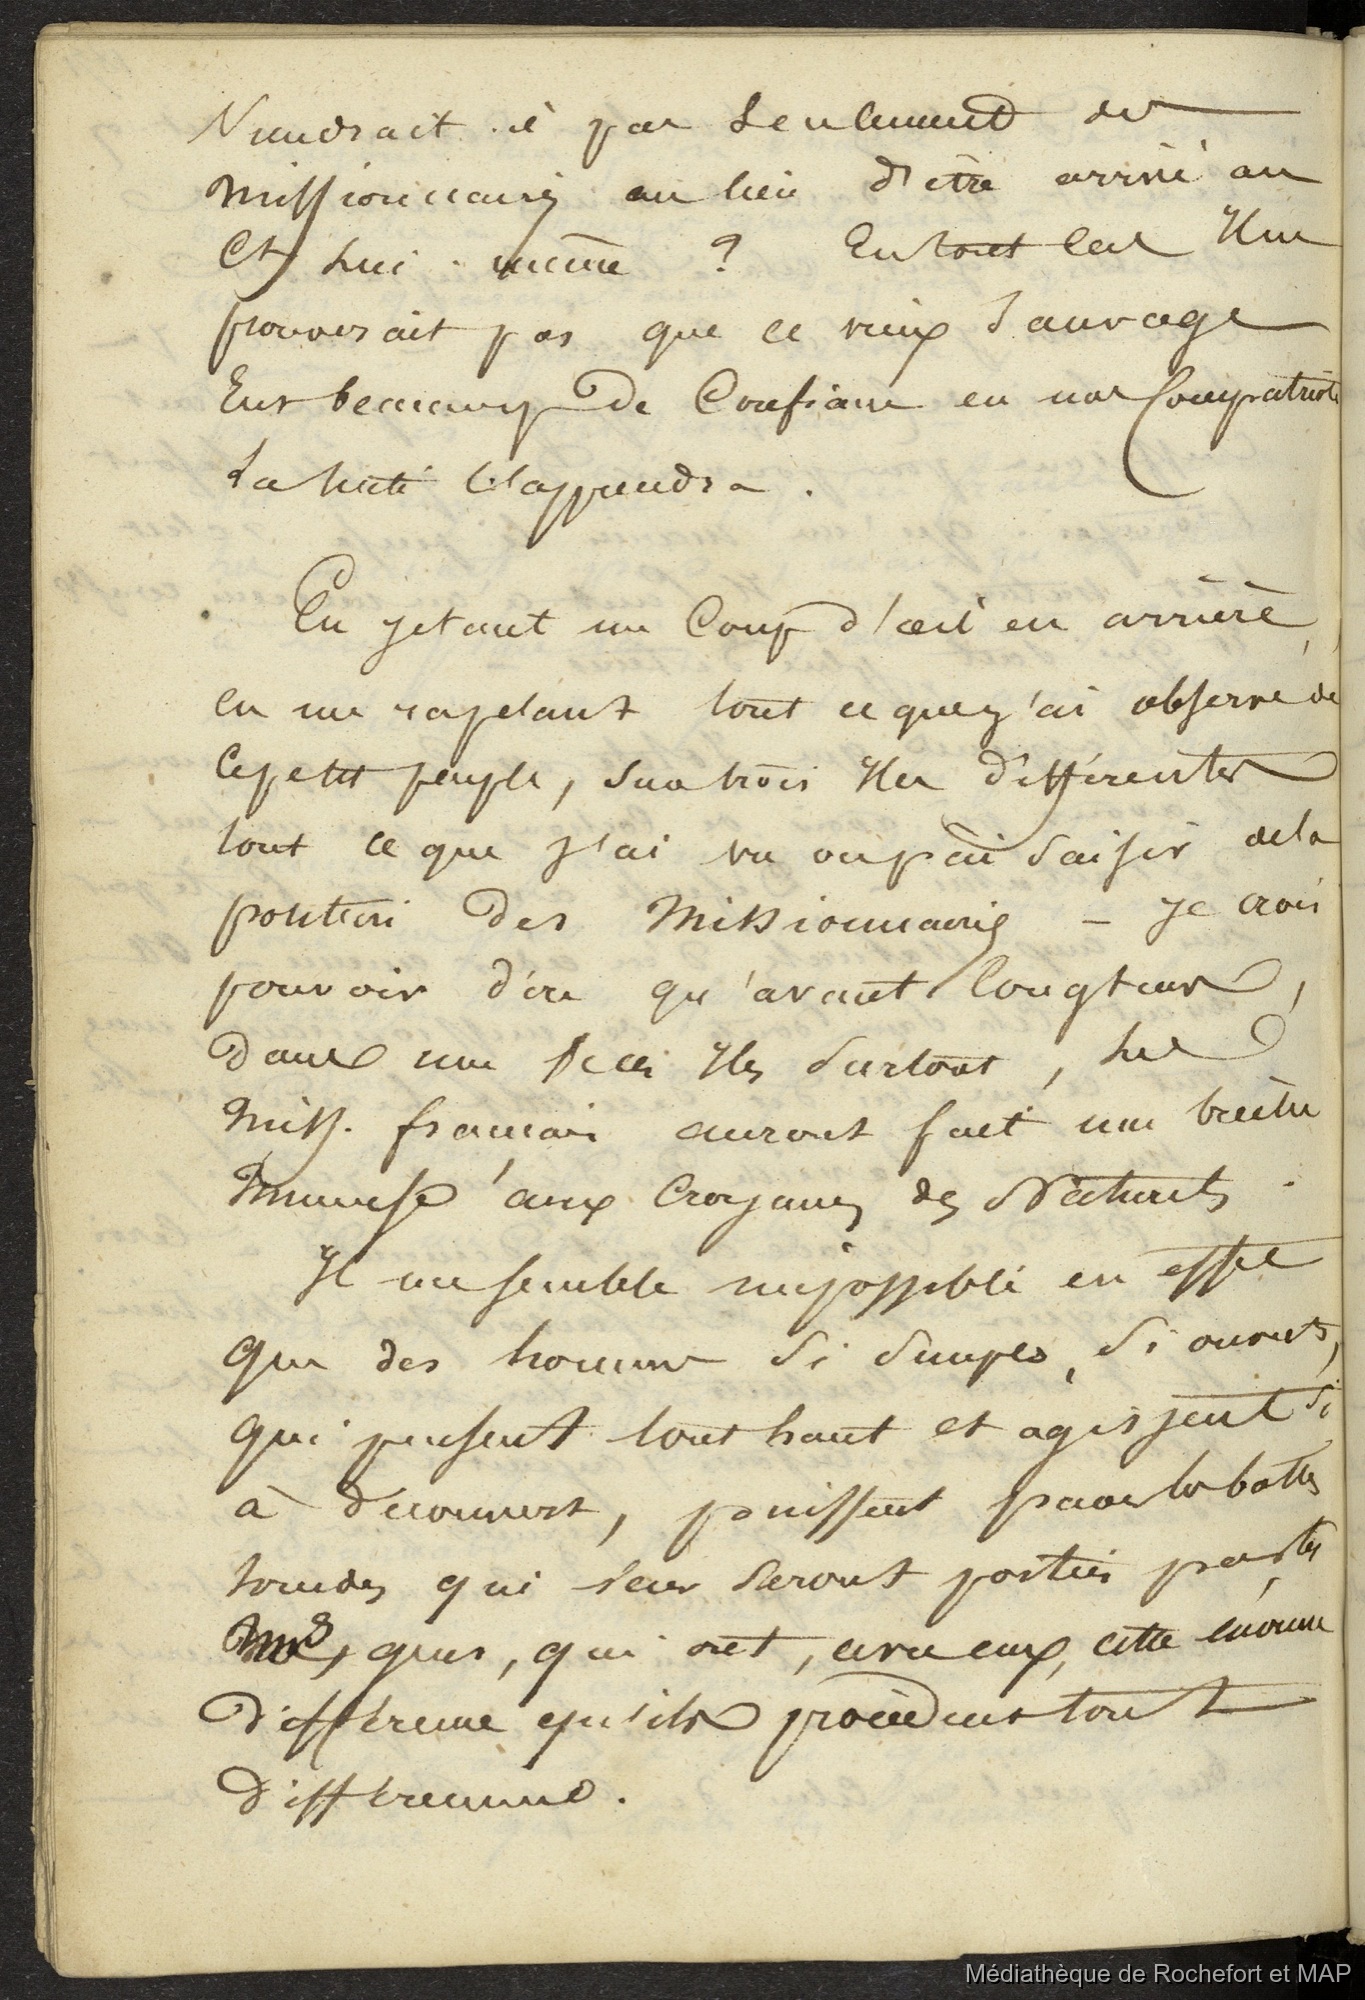 Viendrait-il pas seulement des
missionnaires au lieu d'être arrivé au
Ct lui-même ? En tout cas Il ne
prouverait pas que ce vieux Sauvage
Eut beaucoup de Confiance en nos Compatriotes
La suite l'apprendra.
En jetant un Coup d'œil en arrière,
en me rapelant tout ce que j'ai observé de
ce petit peuple, sur trois Iles différentes
tout ce que j'ai vu ou pu Saisir de la
position des Missionnaires — Je crois
pouvoir dire qu'avant longtems,
dans une des Iles Surtout, les
Miss. français auront fait une brèche
Immense aux Croyances des Naturels.
Il me semble impossible en effet
que des hommes Si Simples, Si ouverts,
qui pensent tout haut et agissent Si
à découvert, puissent parer les bottes
qui leur Seront portées par les
qui ont, avec eux, cette énorme
différence qu'ils procèdent tout
différemment.
Médiathèque de Rochefort et MAP